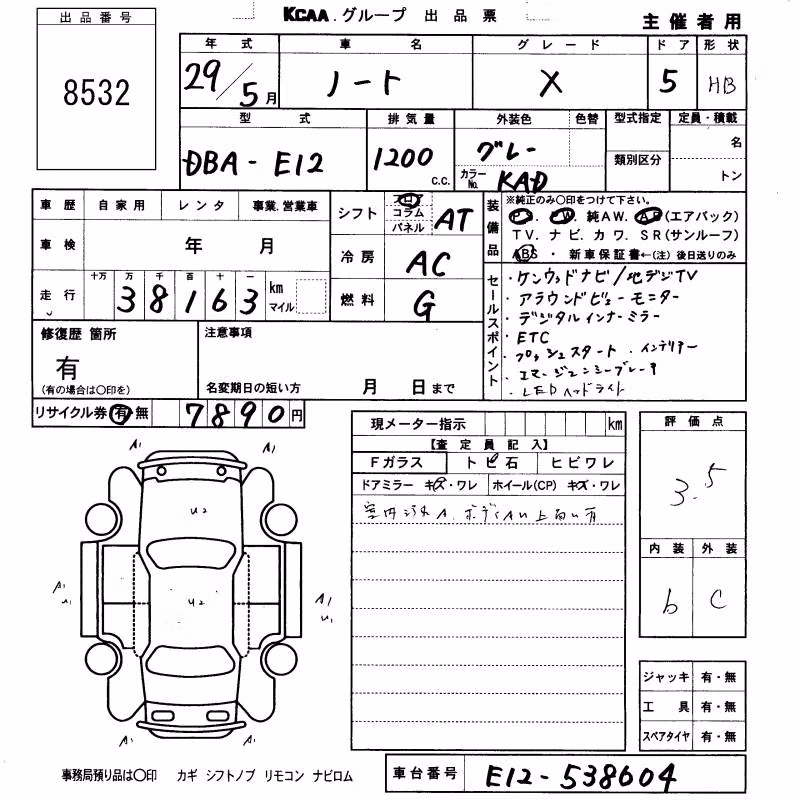 KCAA.グループ 出品票
主催者用
出品番号
8532
年式 車名 グレード ドア 形状
29/5月 ノート X 5 HB
型式 排気量 外装色 色替 型式指定 定員・積載
DBA-E12 1200 C.C. グレー 名
カラーNo. KAD 類別区分 トン
車歴 自家用 レンタ 事業.営業車
シフト フロア コラム パネル AT
装備品 ※純正のみ○印をつけて下さい。
PS. PW. 純AW. AB(エアバック)
TV. ナビ. カワ. SR(サンルーフ)
ABS ・ 新車保証書←(注) 後日送りのみ
車検 年 月
冷房 AC
走行 十万 万 千 百 十 一
38163 km マイル
燃料 G
セールスポイント
・ケンウッドナビ/地デジTV
・アラウンドビューモニター
・デジタルインナーミラー
・ETC
・プッシュスタート .インテリキー
・エマージェンシーブレーキ
・LEDヘッドライト
修復歴 箇所
有
(有の場合は○印を)
注意事項
名変期日の短い方 月 日まで
リサイクル券 有 無 7890円
現メーター指示 km
【査定員記入】
Fガラス トビ石 ヒビワレ
ドアミラー キズ・ワレ ホイール(CP) キズ・ワレ
室内汚れA. ボディAU上面U有
評価点
3.5
内装 外装
b C
A1 A1
U2
A1 U1 U2 A1 U1
A1 A1
ジャッキ 有・無
工具 有・無
スペアタイヤ 有・無
事務局預り品は○印 カギ シフトノブ リモコン ナビロム
車台番号 E12-538604